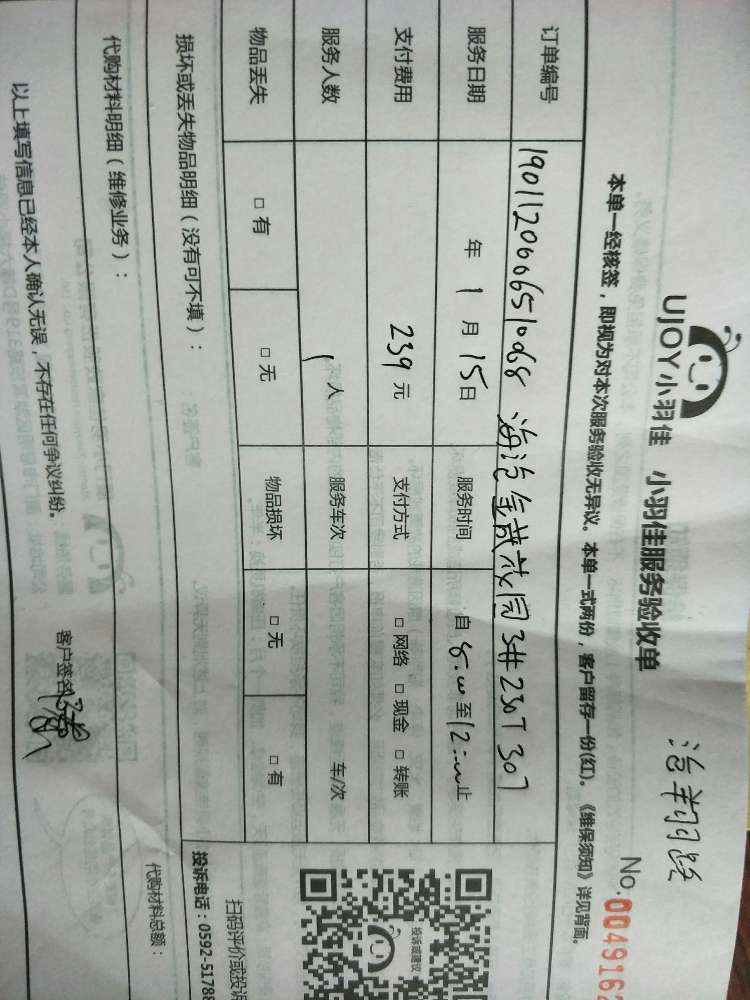 UJOY小羽佳 小羽佳服务验收单
No.004916
本单一经核签，即视为对本次服务验收无异议。本单一式两份，客户留存一份(红)。《维保须知》详见背面。
订单编号 190112000651068 3# 230T 307
服务日期 年 1 月 15 日 服务时间 自 8:00 至 12:00 止
支付费用 239 元 支付方式 □ 网络 □ 现金 □ 转账
服务人数 1 人 服务车次 车/次
物品丢失 □ 有 □ 无 物品损坏 □ 无 □ 有
投诉或建议
扫码评价或投诉
投诉电话：0592-51788
损坏或丢失物品明细（没有可不填）：
代购材料明细（维修业务）：
代购材料总额：
以上填写信息已经本人确认无误，不存在任何争议纠纷。
客户签名